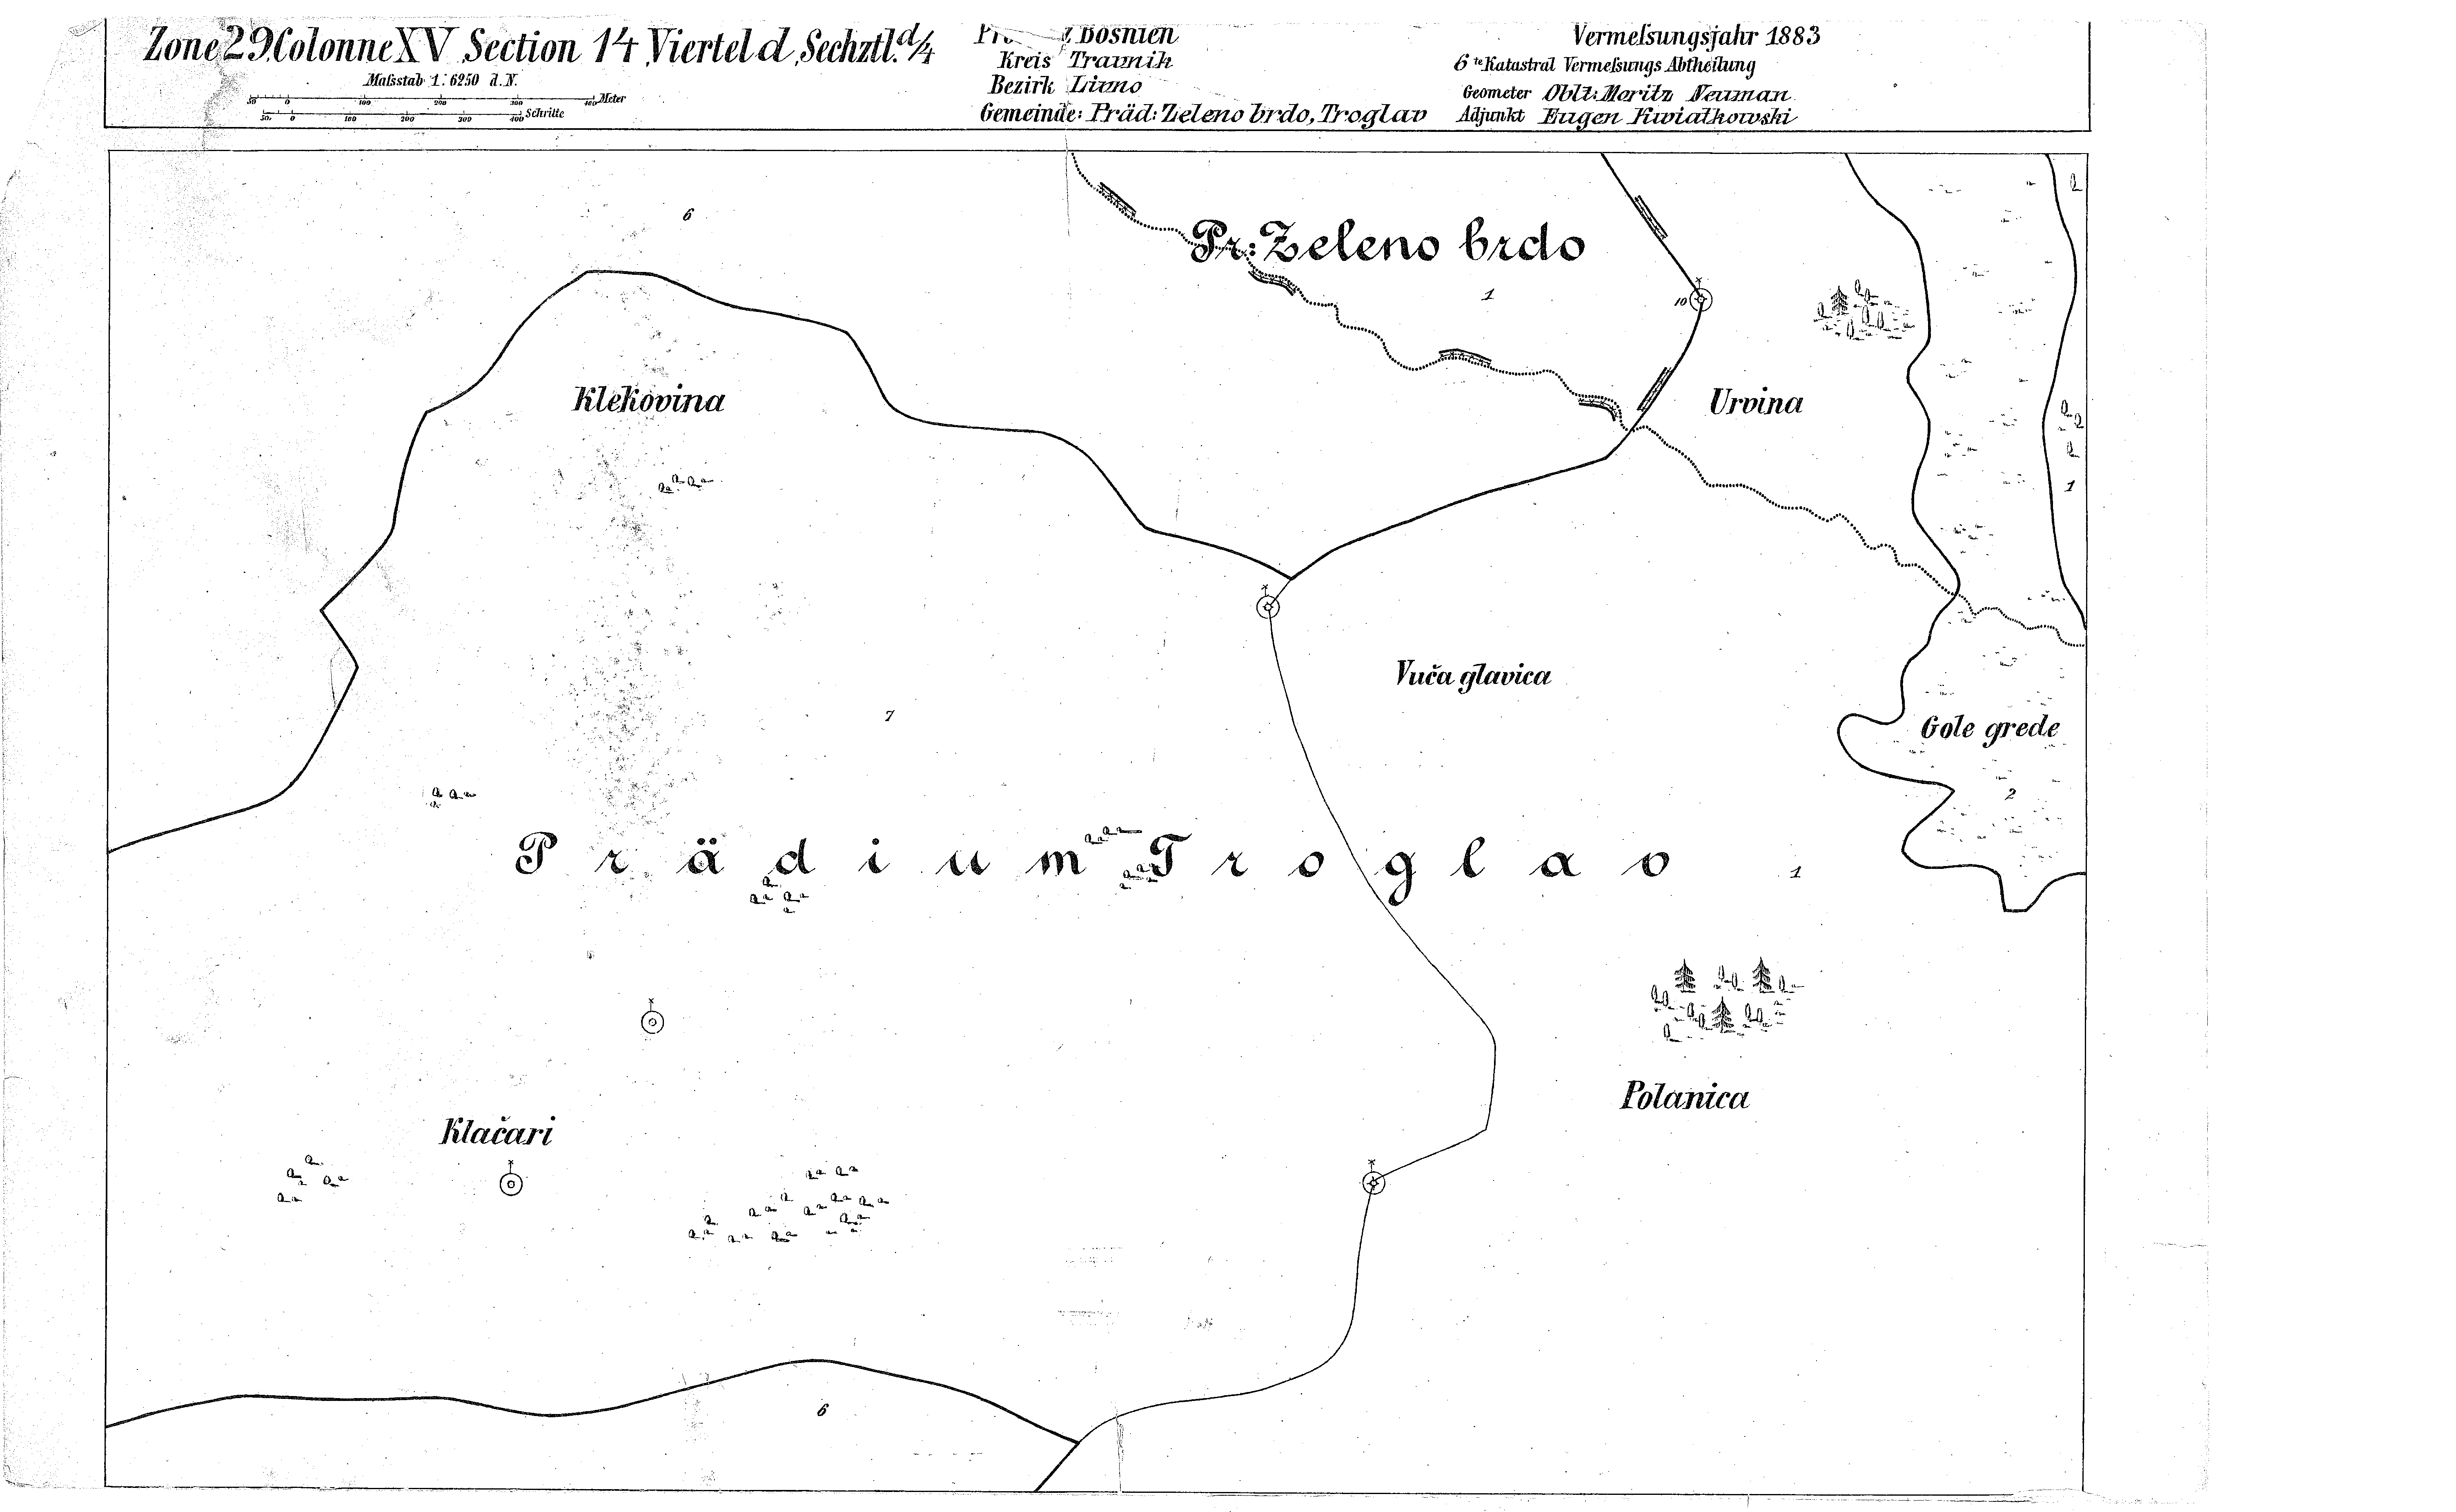 Zone 29 Colonne XV Section 14 Viertel d Sechztl. d/4
Maſsstab 1:6250 d.N.
50 0 100 200 300 400 Meter
50 0 100 200 300 400 Schritte
Bosnien
Kreis Travnik
Bezirk Livno
Gemeinde: Präd: Zeleno brdo, Troglav
Vermeſsungsjahr 1883
6te Katastral Vermeſsungs Abtheilung
Geometer Oblt: Moritz Neuman
Adjunkt Eugen Kwiatkowski
6
Pr: Zeleno brdo
1
10
Klekovina
Urvina
1
Vuča glavica
7
Gole grede
2
Prädium Troglav
1
Polanica
Klačari
6